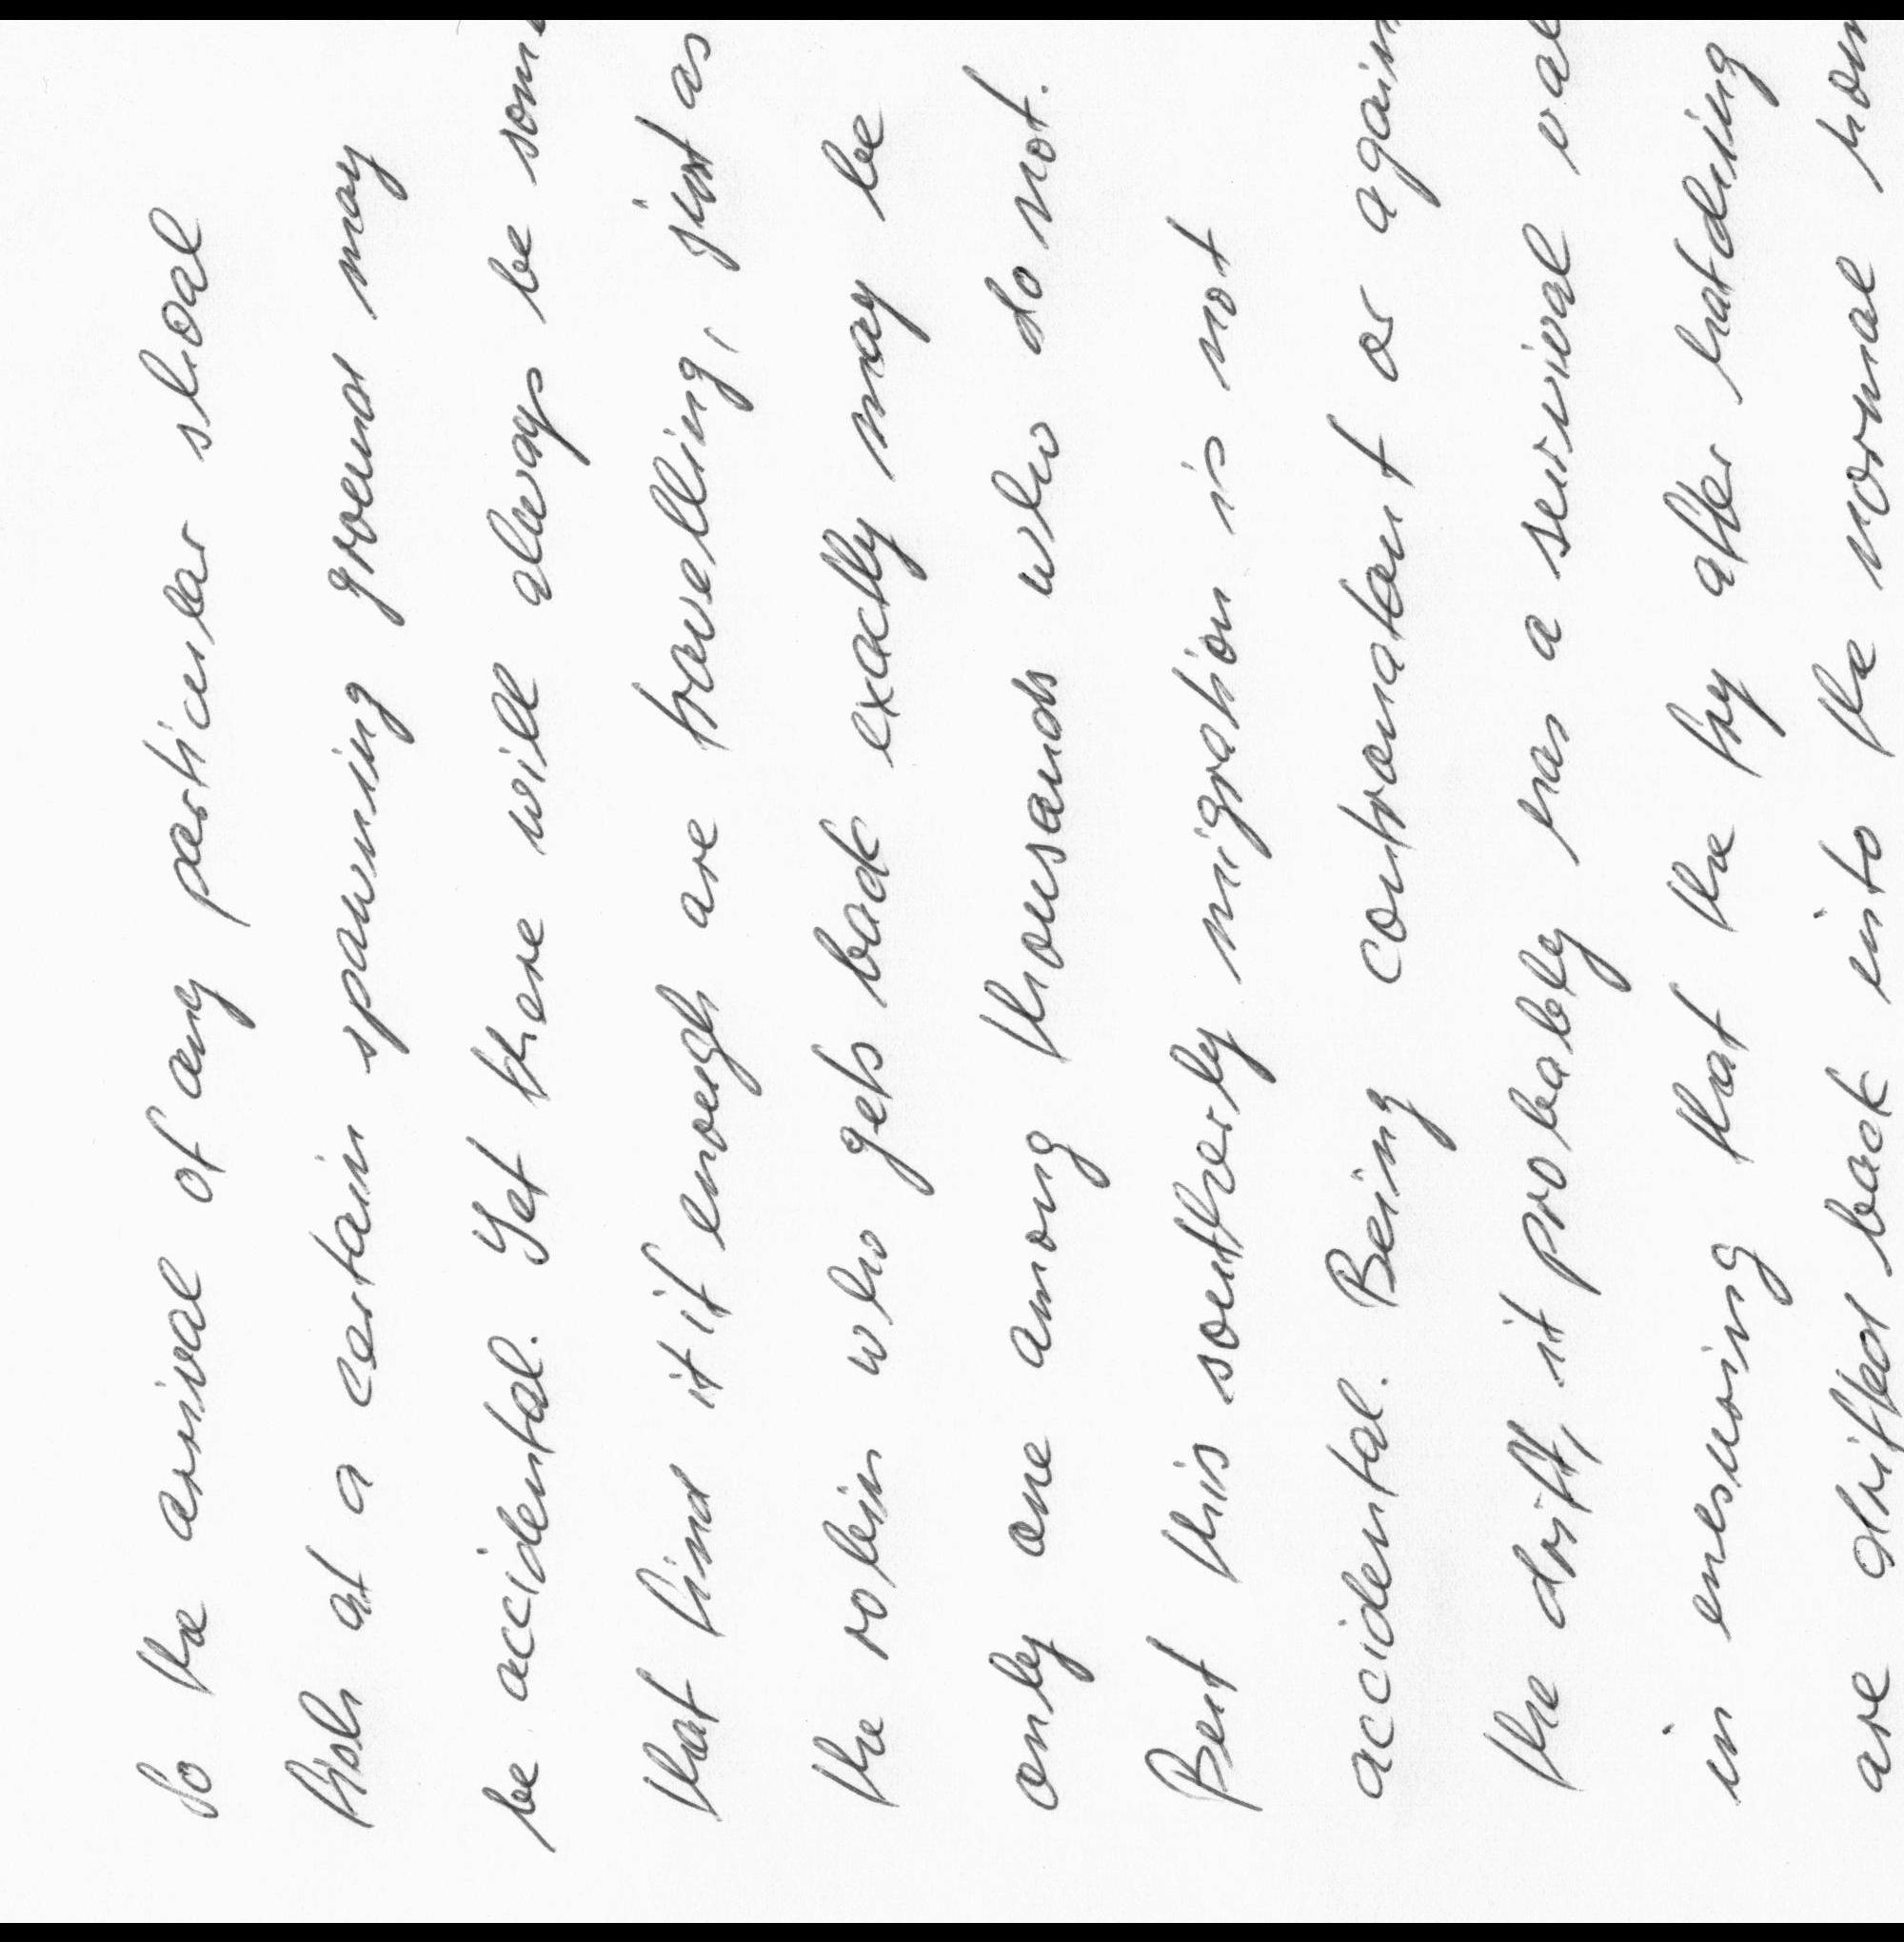 So the arrival of any particular shoal
fish at a certain spawning ground may
be accidental. Yet there will always be
that find it if enough are travelling, just as
the robin who gets back exactly may be
only one among thousands who do not.
But this southerly migration is not
accidental. Being contranatant or
the drift, it probably has a survival
in ensuring that the fry after hatching
are drifted back into the normal